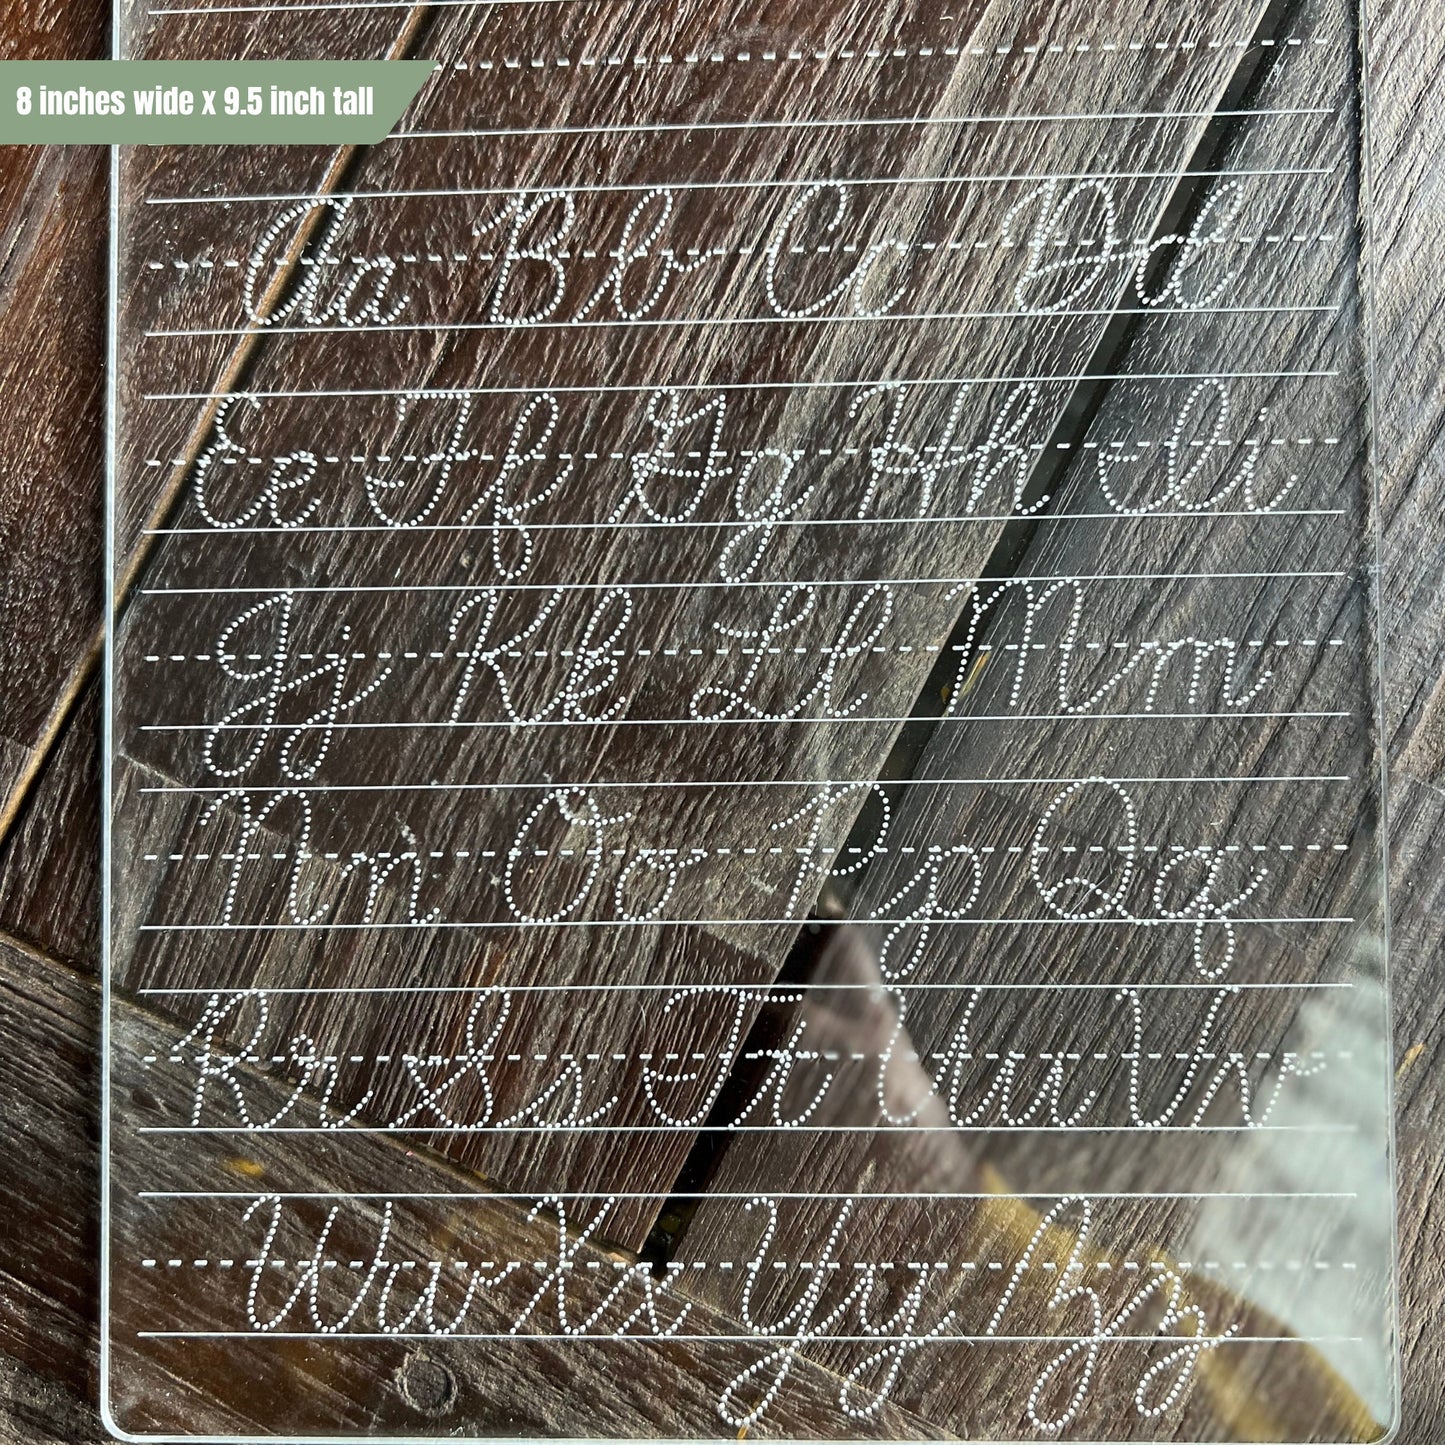 8 inches wide x 9.5 inch tall
Aa Bb Cc Dd
Ee Ff Gg Hh Ii
Jj Kk Ll Mm
Nn Oo Pp Qq
Rr Ss Tt Uu Vv
Ww Xx Yy Zz